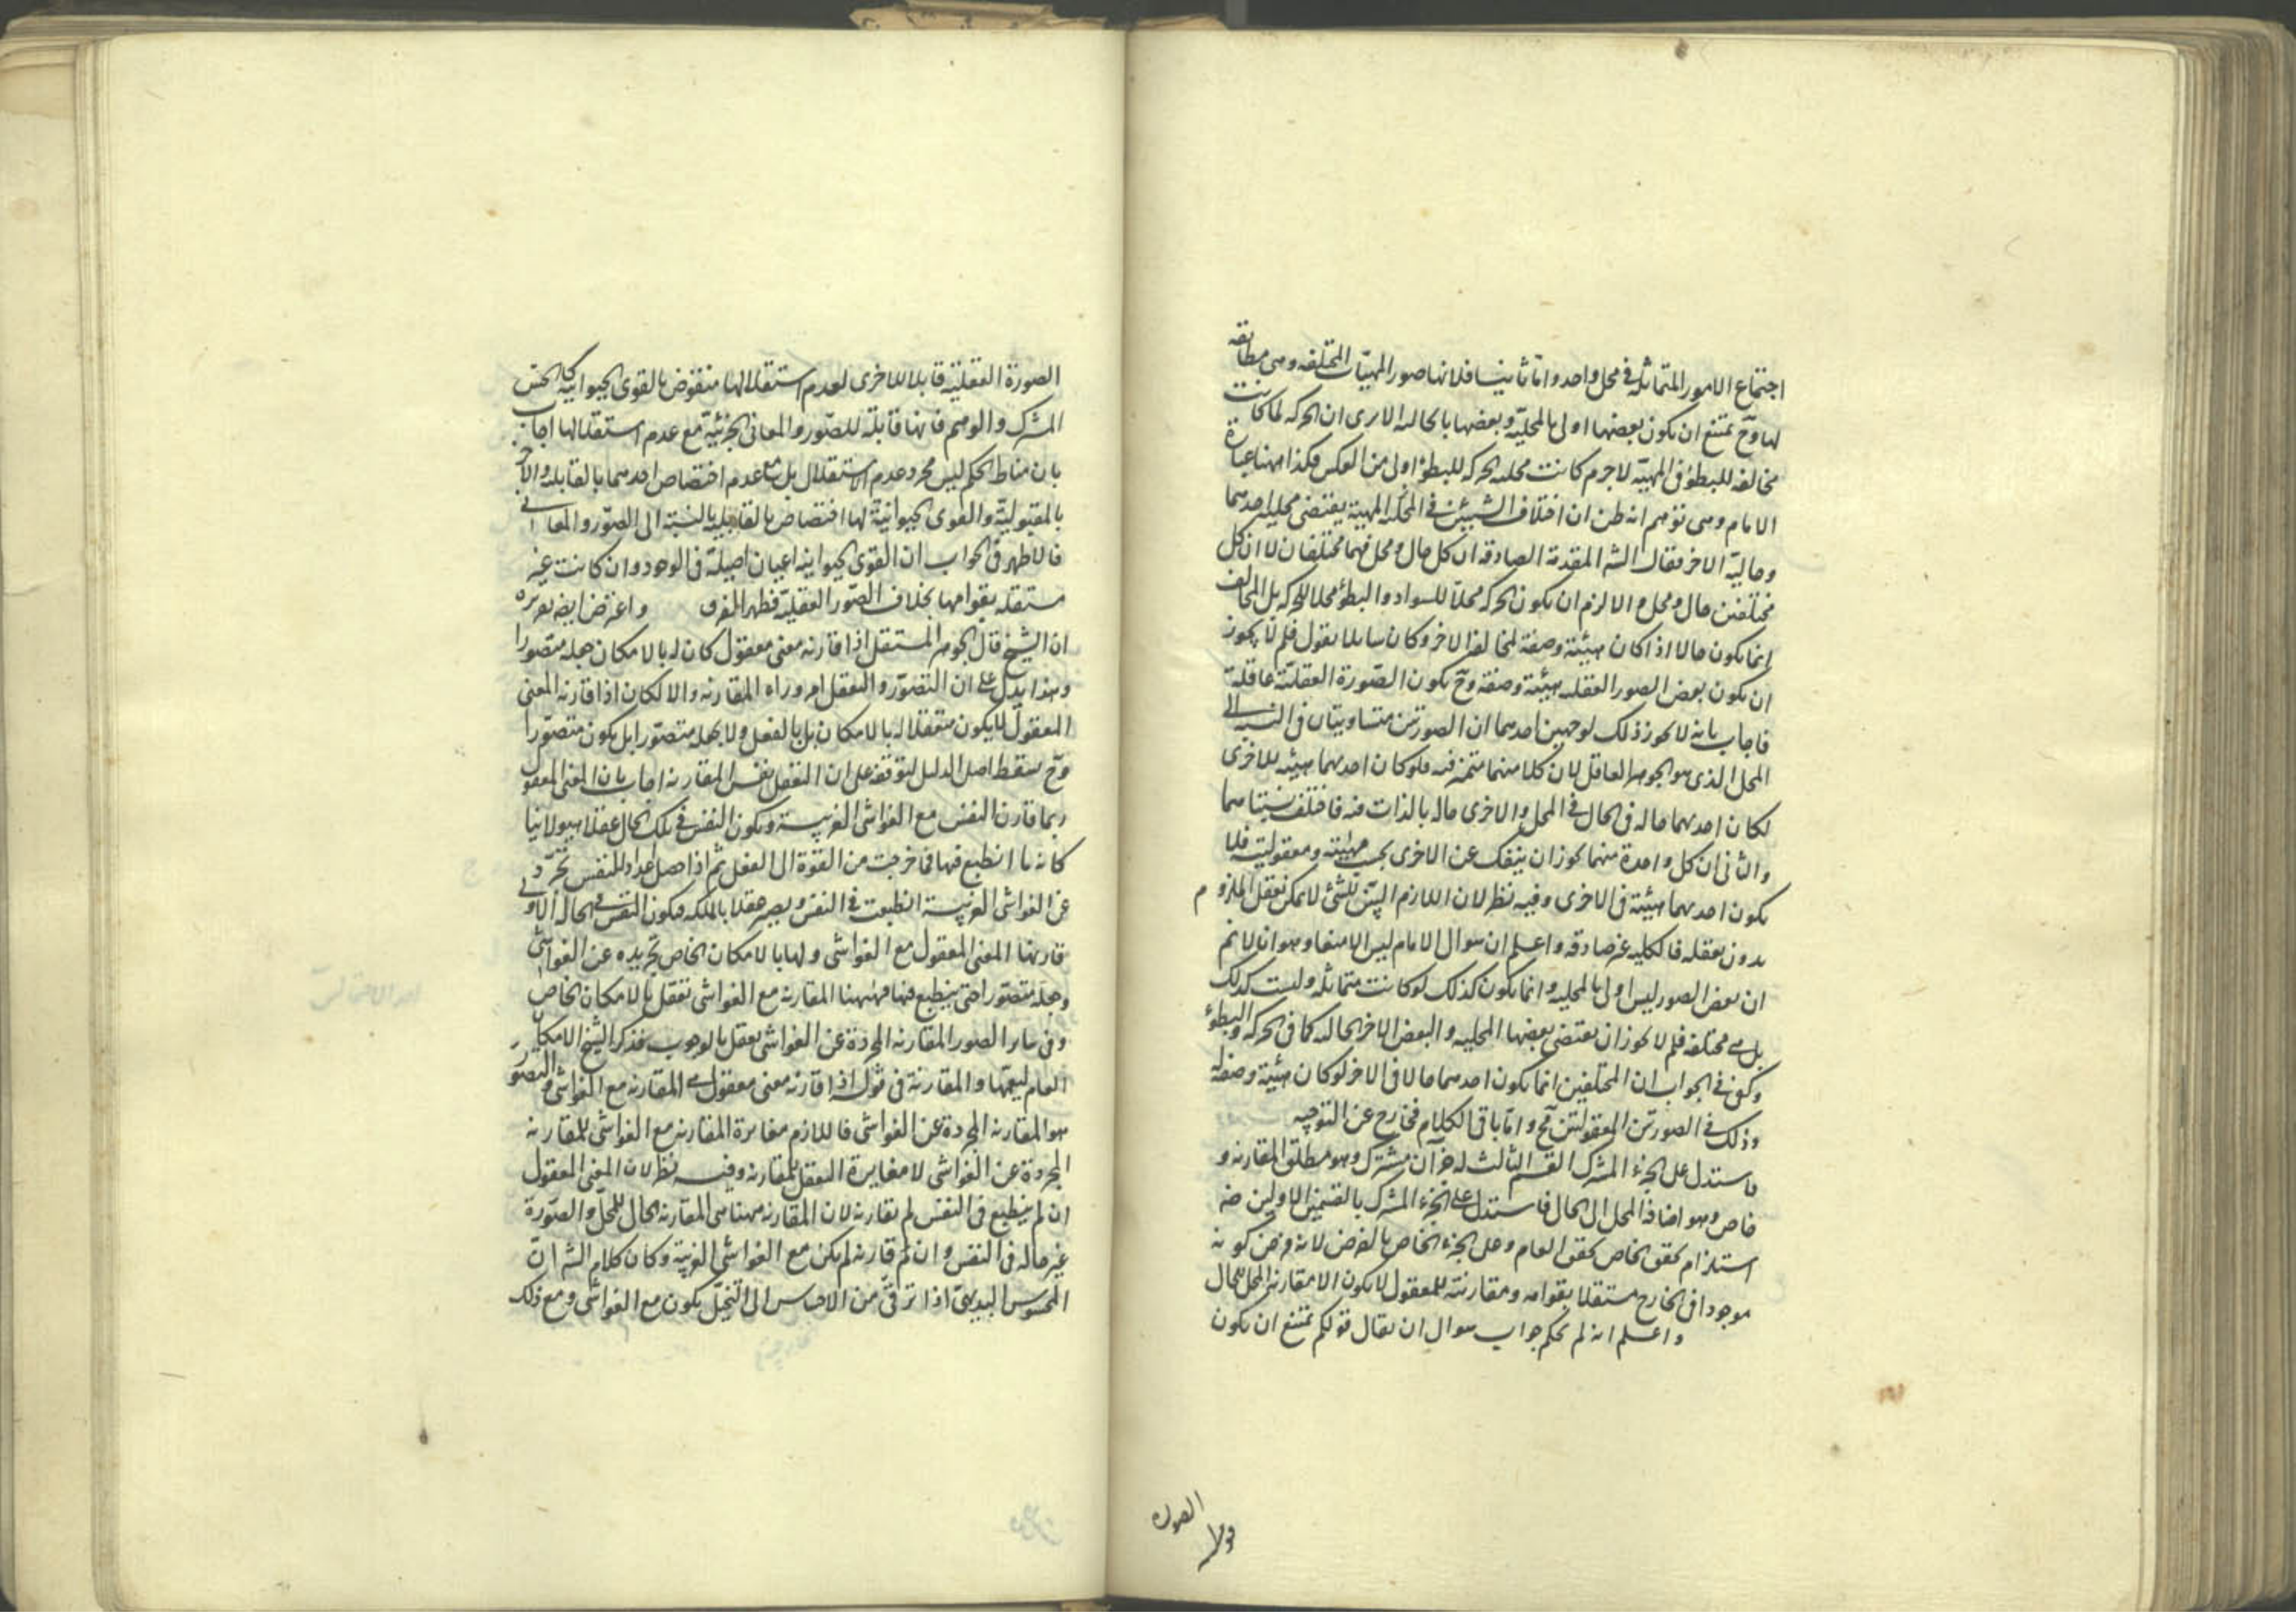 اجتماع الامور المتماثلة فى محل واحد واما ثانيا فلانها صور المهيات المختلفه وهى مطابقه
لها وح يمتنع ان يكون بعضها اولى بالمحليّة وبعضها بالحالية الا يرى ان الحركه لما كانت
مخالفه للبطؤ فى المهيّه لاجرم كانت محليه الحركه للبطؤ اولى من العكس فكذا ههنا عبارة
الامام وهى توهم انه ظن ان اختلاف الشيئين فى المهية يقتضى محلية احدهما
وحاليّة الاخر فقال الشه المقدمة الصادقه ان كل حال ومحل فهما مختلفان لا ان كل
مختلفين حال ومحل والا لزم ان يكون الحركه محلا للسواد والبطؤ محلا للحركه بل المخالف
انما يكون حالا اذا كان هيئة وصفة لمخالفه الاخر وكان سايلا يقول فلم لا يجوز
ان يكون بعض الصور العقليه هيئة وصفه وح يكون الصّورة العقليّة عاقلة
فاجاب بانه لا يجوز ذلك لوجهين احدهما ان الصورتين متساويتان فى النسبه الى
المحل الذى هو الجوهر العاقل لان كلا منهما متمثّله فيه فلو كان احديهما هيئه للاخرى
لكان احديهما حاله فى الحال فى المحل والاخرى حاله بالذات فيه فاختلف نسبتاهما
والثانى ان كل واحدة منهما يجوز ان ينفك عن الاخرى بحسب مهيّته ومعقوليّته فلا
يكون احديهما هيئة فى الاخرى وفيه نظر لان اللازم البيّن للشئ لا يمكن تعقل الملزوم
بدون تعقله فالكليه غير صادقه واعلم ان سوال الامام ليس الا منعا وهو انا لا نم
ان بعض الصور ليس اولى بالمحليه وانما يكون كذلك لو كانت متماثله وليست كذلك
بل هى مختلفه فلم لا يجوز ان يقتضى بعضها المحليه والبعض الاخر الحاليه كما فى الحركه والبطؤ
وكفى فى الجواب ان المختلفين انما يكون احدهما حالا فى الاخر لو كان هيئة وصفه له
وذلك فى الصورتين المعقولتين مح واما باقى الكلام فخارج عن التوجيه
فاستدل على الجزء المشترك القسم الثالث له جزآن مشترك وهو مطلق المقارنه و
خاص وهو اضافة المحل الى الحال فاستدل على الجزء المشترك بالقسمين الاولين ضه
استلزام تحقق الخاص تحقق العام وعلى الجزء الخاص بالفرض لانه فرض كونه
موجودا فى الخارج مستقلا بقوامه ومقارنته للمعقول لا يكون الا مقارنة المحل للحال
واعلم انه لم يحكم جواب سوال ان يقال قولكم يمتنع ان يكون
الصورة
الصورة العقليّة قابلا للاخرى لعدم استقلالها منقوض بالقوى الحيوانيّه كالحسّ
المشترك والوهم فانها قابلة للصّور والمعانى الجزئيّة مع عدم استقلالها اجاب
بان مناط الحكم ليس مجرد عدم الاستقلال بل مع عدم اختصاص احدهما بالقابليه والاخر
بالمقبوليّة والقوى الحيوانيّة لها اختصاص بالقابلية بالنسبة الى الصّور والمعانى
فالاظهر فى الجواب ان القوى الحيوانيه اعيان اصيلة فى الوجود وان كانت غير
مستقله بقوامها بخلاف الصّور العقليّة فظهر الفرق واعترض ايضه بعزه
ان الشيخ قال الجوهر المستقل اذا قارنه معنى معقول كان له بالامكان جعله متصورا
وهذا يدل على ان التصوّر والتعقل امر وراء المقارنه والا لكان اذا قارنه المعنى
المعقول لا يكون متعقلا له بالامكان بل بالفعل ولا يجعله متصوّرا بل يكون متصوّرا
وح سقط اصل الدليل لتوقفه على ان التعقل نفس المقارنه اجاب بان المعنى المعقول
ربما قارن النفس مع الغواشى الغريبة ويكون النفس فى تلك الحال عقلا هيولانيا
كانه ما انطبع فيها فما خرجت من القوة الى الفعل ثم اذا حصل اعداد للنفس تجرّد
عن الغواشى الغريبة انطبعت فى النفس ويصير عقلا بالملكه فيكون النفس فى الحاله الاولى
قارنها المعنى المعقول مع الغواشى ولها بالامكان الخاص تجريده عن الغواشى
وجعله متصوّرا حتى ينطبع فيها فههنا المقارنه مع الغواشى تعقل بالامكان الخاص
وفى ساير الصور المقارنه المجردة عن الغواشى تعقل بالوجوب فذكر الشيخ الامكان
العام ليعمها والمقارنة فى قوله اذا قارنه معنى معقول هى المقارنه مع الغواشى والتصوّر
هو المقارنه المجردة عن الغواشى فاللازم مغايرة المقارنه مع الغواشى للمقارنه
المجردة عن الغواشى لا مغايرة التعقل للمقارنه وفيه نظر لان المعنى المعقول
ان لم ينطبع فى النفس لم تقارنه لان المقارنه ههنا هى المقارنه الحال للمحلّ والصّورة
غير حاله فى النفس وان لم قارنه لم يكن مع الغواشى الغريبة وكان كلام الشه انّ
المحسوس البديهى اذا ترقى من الاحساس الى التخيّل يكون مع الغواشى ومع ذلك